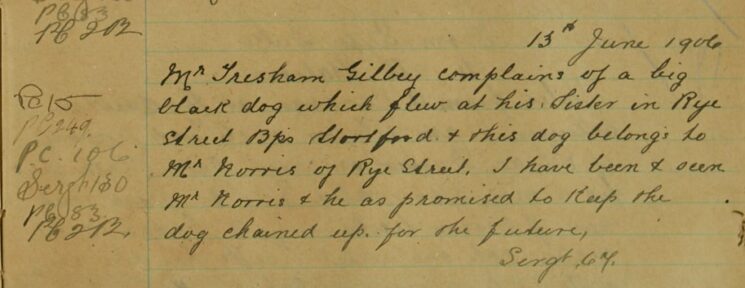 PC 83
PC 212
13th June 1906
Mr Tresham Gilbey complains of a big
black dog which flew at his Sister in Rye
Street Bps Stortford & this dog belongs to
Mr Norris of Rye Street. I have been & seen
Mr Norris & he as promised to Keep the
dog chained up. for the future,
Sergt. 67.
PC 15
PC 249.
P.C. 106
Sergt 130
PC 83
PC 212.